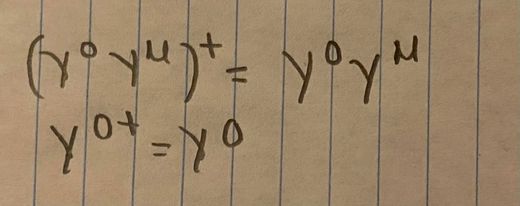 (γ⁰ γᵘ)⁺ = γ⁰γᴹ
γ⁰⁺ = γ⁰